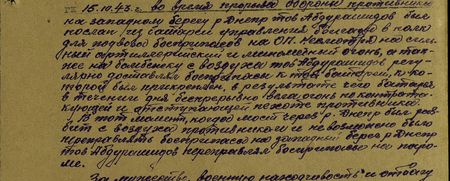 15.10.43 г. во время прорыва обороны противника
на западном берегу р. Днепр тов Абдурашидов был
послан из батареи управления бригады в полк
для подвозки боеприпасов на ОП. Несмотря на силь-
ный артиллерийский и минометный огонь, а так-
же на бомбежку с воздуха тов Абдурашидов регу-
лярно доставлял боеприпасы к той батареи, к ко-
торой был прикреплен, в результате чего батарея
в течении дня беспрерывно вела огонь по контрата-
кующей и отступающей пехоте противника.
В тот момент, когда мост через р. Днепр был раз-
бит с воздуха противником и невозможно было
переправлять боеприпасы на западный берег р Днепр
тов Абдурашидов переправлял боеприпасы на паро-
ме.
За мужество, военную находчивость и отвагу